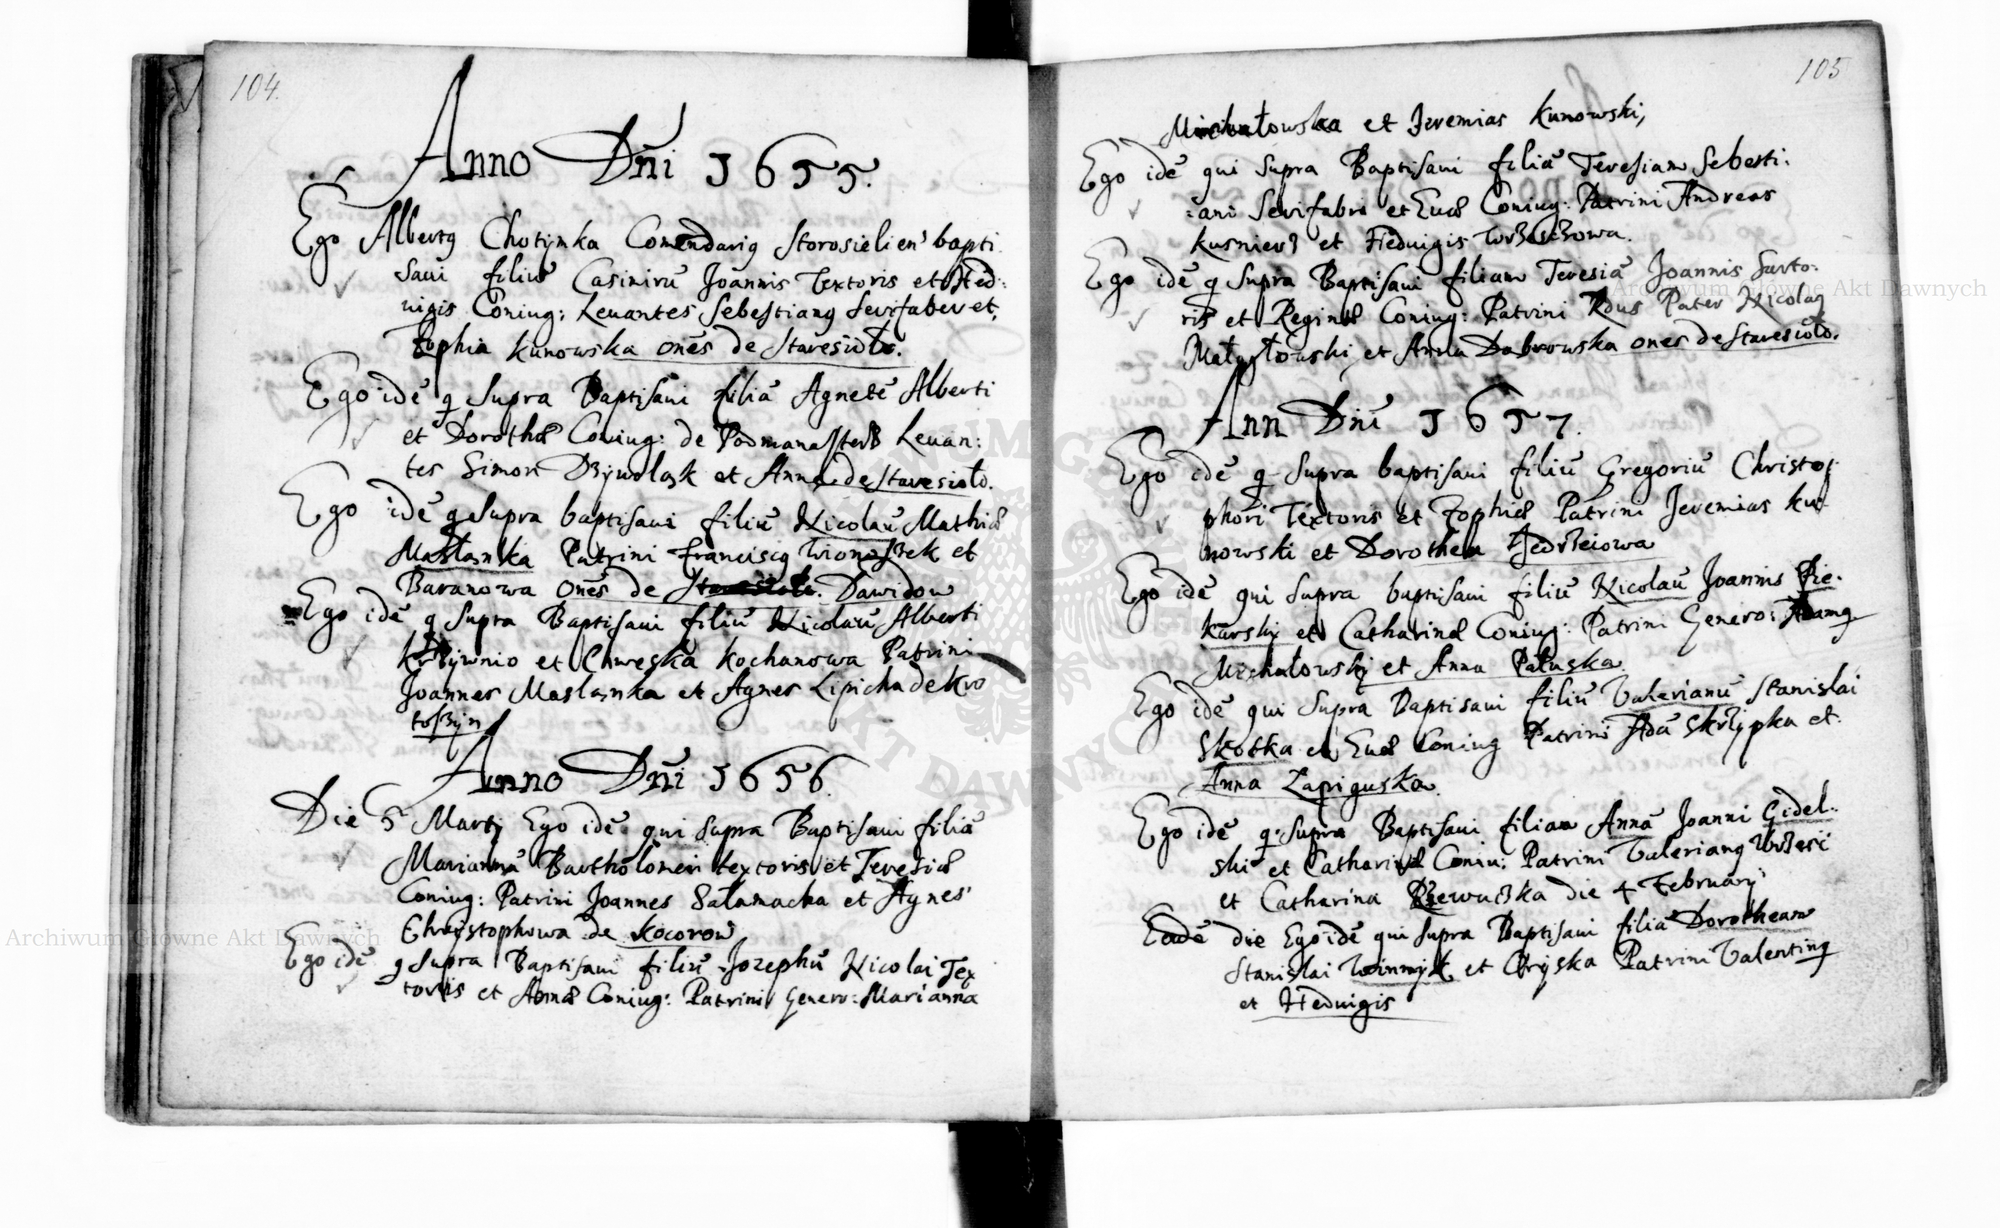 104.
Anno Dñi 1655.
Ego Albertq Chotynka Comendariq Storosielien' bapti
saui filiū Casimirū Joannis Textoris et Hed:
uigis Coniug: Leuantes Sebestianq Serifaber et,
Zophia Kunowska onēs de Staresioło.
Ego idē q supra Baptisaui filiā Agnetē Alberti
et Dorothæ Coniug: de Podmanasterz Leuan:
tes Simon et Anna de Staresioło.
Ego idē q supra baptisaui filiū Nicolaū Mathiæ
Maslanka Patrini Franciscq et
Baranowa onēs de Dawidow
Ego idē q supra Baptisaui filiū Nicolaū Alberti
et Kochanowa Patrini
Joannes Maslanka et Agnes Lipicha de Kro
toszyn
Anno Dñi 1656.
Die 5 Martij Ego idē qui supra Baptisaui filiā
Mariannā Bartholomei textoris et Teresiæ
Coniug: Patrini Joannes Sałamacha et Agnes
Chrystophowa de Kocorow
Ego idē q supra Baptisaui filiū Jozephū Nicolai Tex
toris et Annæ Coniug: Patrini Genero: Marianna
105
Michałowska et Jeremias Kunowski,
Ego idē qui supra Baptisaui filiā Teresiam Sebesti:
:ani Serifabri et Euæ Coniug: Patrini Andreas
Kusnierz et Heduigis
Ego idē q supra Baptisaui filiam Teresiā Joannis Sarto:
ris et Reginæ Coniug: Patrini Rdus Pater Nicolaq
et Anna Dabrowska onēs de Staresioło.
Ann Dñi 1657.
Ego idē q supra baptisaui filiū Gregoriū Christo
phori Textoris et Zophiæ Patrini Jeremias Ku
nowski et Dorothea Jędrzeiowa
Ego idē qui supra baptisaui filiū Nicolaū Joannis Pie-
karski et Catharinæ Coniug: Patrini Genero: Adamq
Michałowskj et Anna Pałuska
Ego idē qui supra Baptisaui filiū Valerianū Stanislai
Skotka et Euæ Coniug Patrini Adā Skrzypka et
Anna Łapiguska.
Ego idē q supra Baptisaui filiam Annā Joanni Gidel-
ski et Catharinæ Coniu: Patrini Valerianq
et Catharina Rzewuska die 4 February
Eadē die Ego idē qui supra Baptisaui filiā Dorotheam
Stanislai et Patrini Valentinq
et Heduigis
Archiwum Główne Akt Dawnych
Archiwum Główne Akt Dawnych